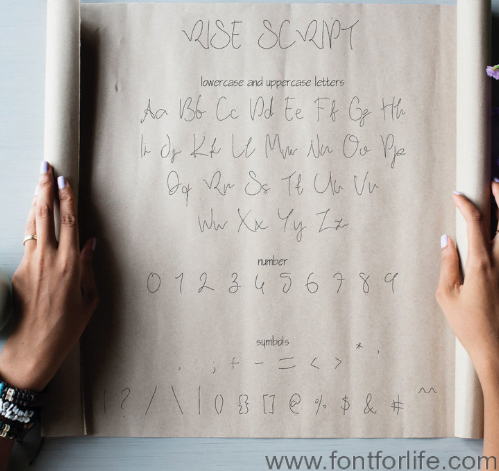 RISE SCRIPT
lowercase and uppercase letters
Aa Bb Cc Dd Ee Ff Gg Hh
Ii Jj Kk Ll Mm Nn Oo Pp
Qq Rr Ss Tt Uu Vv
Ww Xx Yy Zz
number
0 1 2 3 4 5 6 7 8 9
symbols
. ; + - = < > * '
! ? / \ | () {} [] @ % $ & # ^^
www.fontforlife.com